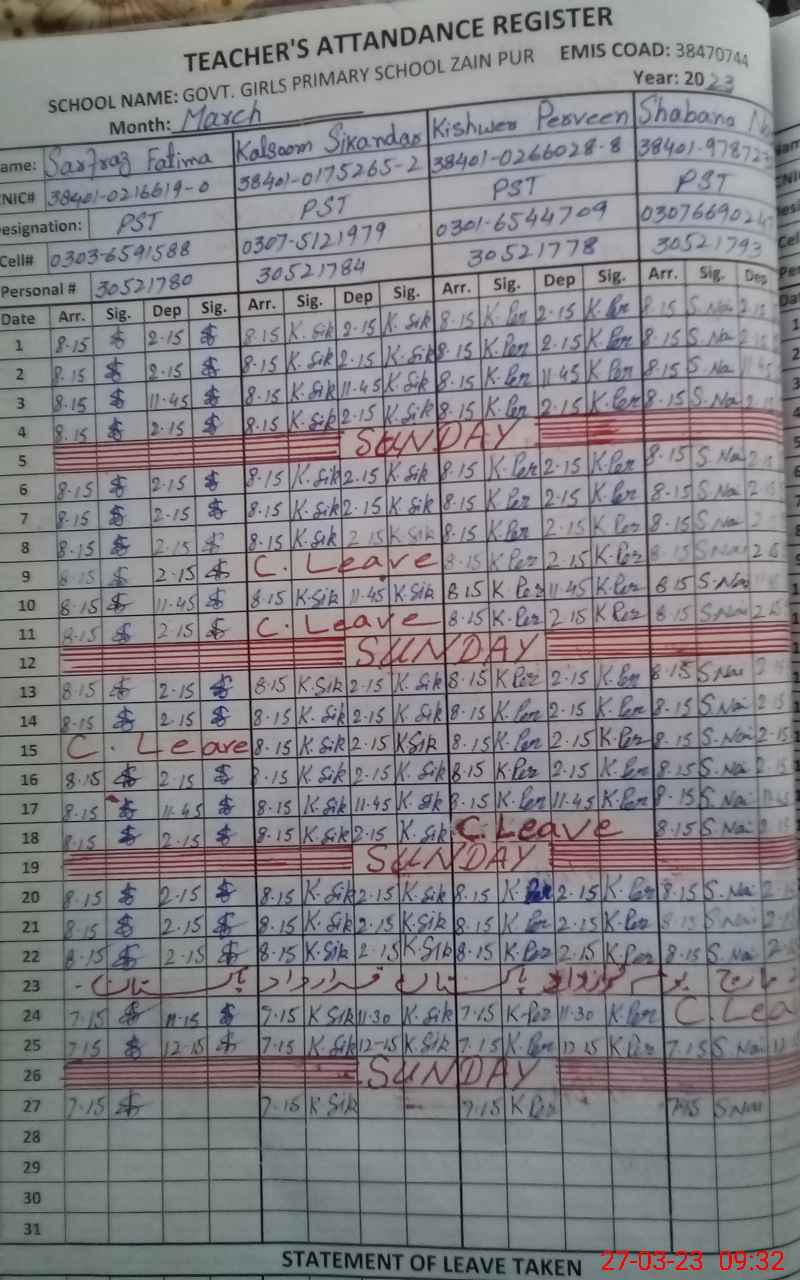 TEACHER'S ATTANDANCE REGISTER
SCHOOL NAME: GOVT. GIRLS PRIMARY SCHOOL ZAIN PUR EMIS COAD: 38470744
Month: March Year: 2023
ame: Sarfraz Fatima Kalsoom Sikandar Kishwer Perveen Shabana
NIC# 38401-0216619-0 38401-0175265-2 38401-0266028-8 38401-97872
esignation: PST PST PST PST
Cell# 0303-6591588 0307-5121979 0301-6544709 030766902
Personal # 30521780 30521784 30521778 30521793
Date Arr. Sig. Dep Sig. Arr. Sig. Dep Sig. Arr. Sig. Dep Sig. Arr. Sig. Dep
1 8.15 2.15 8.15 K.Sik 2.15 K.Sik 8.15 K.Per 2.15 K.Per 8.15 S.Na 2.15
2 8.15 2.15 8.15 K.Sik 2.15 K.Sik 8.15 K.Per 2.15 K.Per 8.15 S.Na 2.15
3 8.15 11.45 8.15 K.Sik 11.45 K.Sik 8.15 K.Per 11.45 K.Per 8.15 S.Na 11.45
4 8.15 2.15 8.15 K.Sik 2.15 K.Sik 8.15 K.Per 2.15 K.Per 8.15 S.Na 2.15
5 SUNDAY
6 8.15 2.15 8.15 K.Sik 2.15 K.Sik 8.15 K.Per 2.15 K.Per 8.15 S.Na 2.15
7 8.15 2.15 8.15 K.Sik 2.15 K.Sik 8.15 K.Per 2.15 K.Per 8.15 S.Na 2.15
8 8.15 2.15 8.15 K.Sik 2.15 K.Sik 8.15 K.Per 2.15 K.Per 8.15 S.Na
9 8.15 2.15 C. Leave 8.15 K.Per 2.15 K.Per 8.15 S.Na 2.15
10 8.15 11.45 8.15 K.Sik 11.45 K.Sik 8.15 K.Per 11.45 K.Per 8.15 S.Na
11 8.15 2.15 C. Leave 8.15 K.Per 2.15 K.Per 8.15 S.Na 2.15
12 SUNDAY
13 8.15 2.15 8.15 K.Sik 2.15 K.Sik 8.15 K.Per 2.15 K.Per 8.15 S.Na
14 8.15 2.15 8.15 K.Sik 2.15 K.Sik 8.15 K.Per 2.15 K.Per 8.15 S.Na 2.15
15 C. Leave 8.15 K.Sik 2.15 K.Sik 8.15 K.Per 2.15 K.Per 8.15 S.Na 2.15
16 8.15 2.15 8.15 K.Sik 2.15 K.Sik 8.15 K.Per 2.15 K.Per 8.15 S.Na 2.15
17 8.15 11.45 8.15 K.Sik 11.45 K.Sik 8.15 K.Per 11.45 K.Per 8.15 S.Na
18 8.15 2.15 8.15 K.Sik 2.15 K.Sik C. Leave 8.15 S.Na 2.15
19 SUNDAY
20 8.15 2.15 8.15 K.Sik 2.15 K.Sik 8.15 K.Per 2.15 K.Per 8.15 S.Na 2.15
21 8.15 2.15 8.15 K.Sik 2.15 K.Sik 8.15 K.Per 2.15 K.Per 8.15 S.Na 2.15
22 8.15 2.15 8.15 K.Sik 2.15 K.Sik 8.15 K.Per 2.15 K.Per 8.15 S.Na
23 مارچ یوم قرارداد پاکستان قرارداد پاکستان
24 7.15 11.15 7.15 K.Sik 11.30 K.Sik 7.15 K.Per 11.30 K.Per C. Lea
25 7.15 12.15 7.15 K.Sik 12-15 K.Sik 7.15 K.Per 12.15 K.Per 7.15 S.Na 12
26 SUNDAY
27 7.15 7.15 K Sik 7.15 K Per 7.15 S Na
28
29
30
31
STATEMENT OF LEAVE TAKEN
27-03-23 09:32